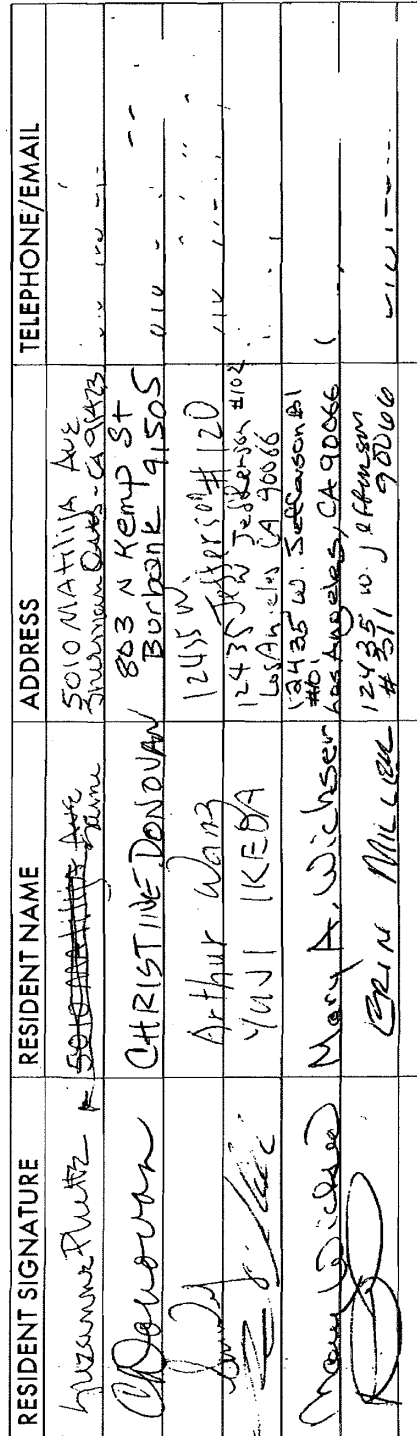 RESIDENT SIGNATURE RESIDENT NAME ADDRESS TELEPHONE/EMAIL
Suzanne 5010 Matilija Ave 5010 MAtilijA Ave
Same Sherman Oaks - CA 91423
CDonovan CHRISTINE DONOVAN 803 N Kemp St
Burbank 91505
Arthur Wang 12435 W
Jefferson # 120
YUJI IKEDA 12435 W Jefferson #102
Los Angeles CA 90066
Mary Wichser Mary A. Wichser 12435 W. Jefferson Bl
#101 Los Angeles, CA 90066
ERIN MILLER 12435 W. Jefferson
# 311 90066